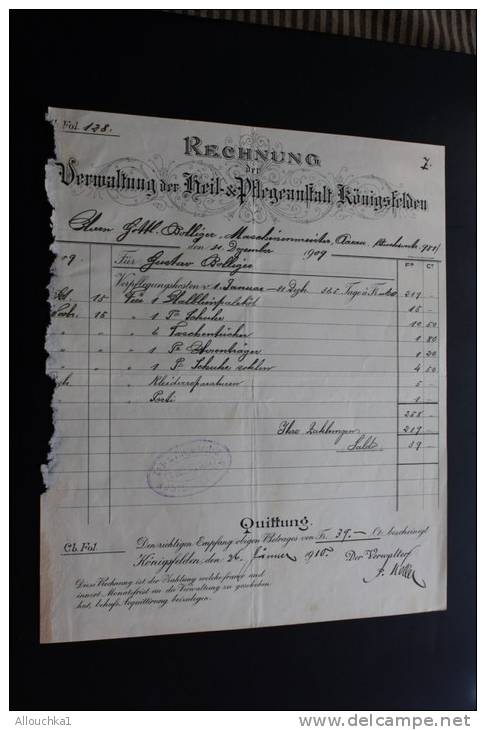 Fol. 128.
RECHNUNG
7.
der
Verwaltung der Heil- & Pflegeanstalt Königsfelden
Herrn Gottl. Bolliger, Maschinenmeister, Aarau
den 31 Dezember 1909
Für Gustav Bolliger
Verpflegungskosten v. 1. Januar - 31 Dzb. 365 Tage à 219 —
15 Für 1 15 —
15 " 1 Pr Schuhe 10 50
" 6 Taschentücher 1 80
" 1 Pr Hosenträger 1 20
" 1 Pr Schuhe sohlen 4 50
Kleiderreparaturen 5 —
Porti 1 —
258 —
Ihre Zahlungen 219 —
Saldo 39 —
Quittung.
Cb. Fol.
Den richtigen Empfang obigen Betrages von Fr. 39.— Ct. bescheinigt
Königsfelden, den 26. Jänner 1910. Der Verwalter
Diese Rechnung ist der Zahlung welche franco und
innert Monatsfrist an die Verwaltung zu geschehen
hat, behufs Acquittirung beizulegen.
Allouchka1
http://www.delcampe.net